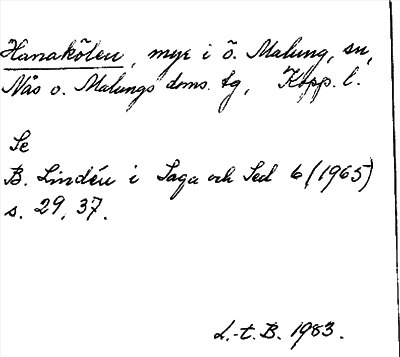 Hanakölen, myr i ö. Malung, sn,
Nås o. Malungs doms. tg, Kopp. l.
Se
B. Lindén i Saga och Sed 6 (1965)
s. 29, 37.
L.-t. B. 1983.